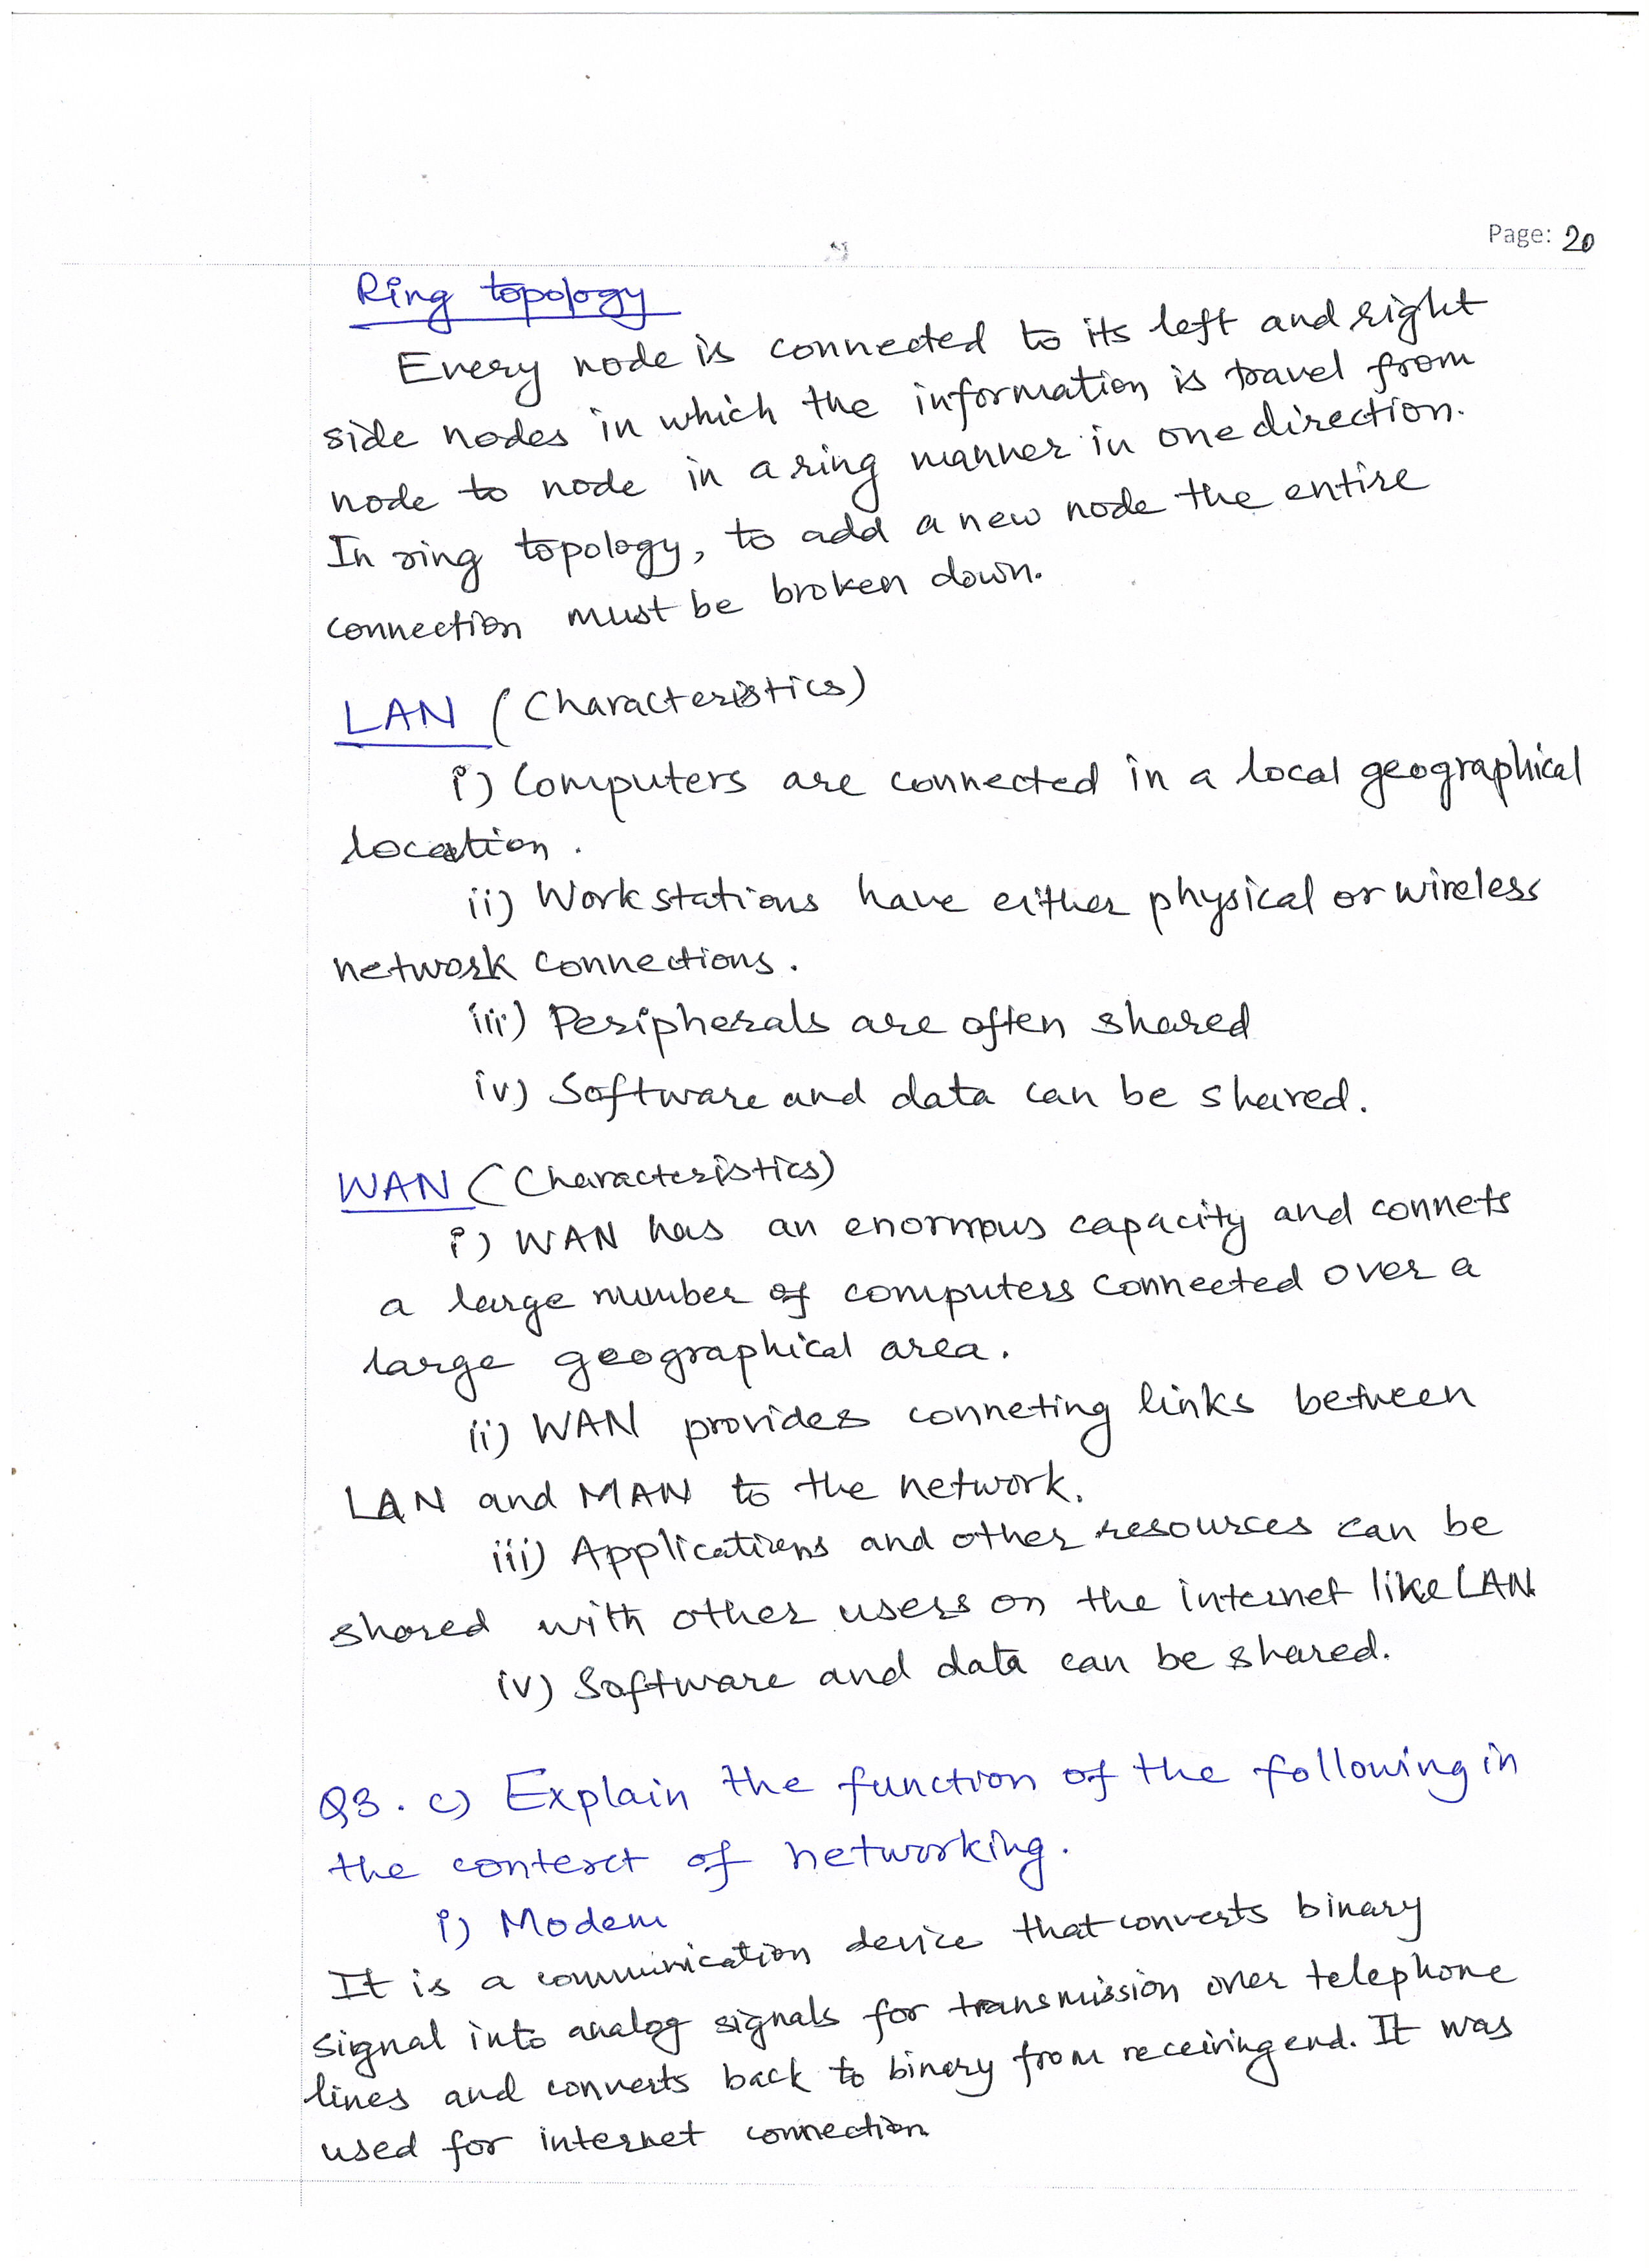 Page: 20
Ring topology
Every node is connected to its left and right
side nodes in which the information is travel from
node to node in a ring manner in one direction.
In ring topology, to add a new node the entire
connection must be broken down.
LAN (Characteristics)
i) Computers are connected in a local geographical
location.
ii) Workstations have either physical or wireless
network connections.
iii) Peripherals are often shared
iv) Software and data can be shared.
WAN (Characteristics)
i) WAN has an enormous capacity and connets
a large number of computers connected over a
large geographical area.
ii) WAN provides conneting links between
LAN and MAN to the network.
iii) Applications and other resources can be
shared with other users on the internet like LAN.
iv) Software and data can be shared.
Q3. c) Explain the function of the following in
the context of networking.
i) Modem
It is a communication device that converts binary
signal into analog signals for transmission over telephone
lines and converts back to binary from receiving end. It was
used for internet connection